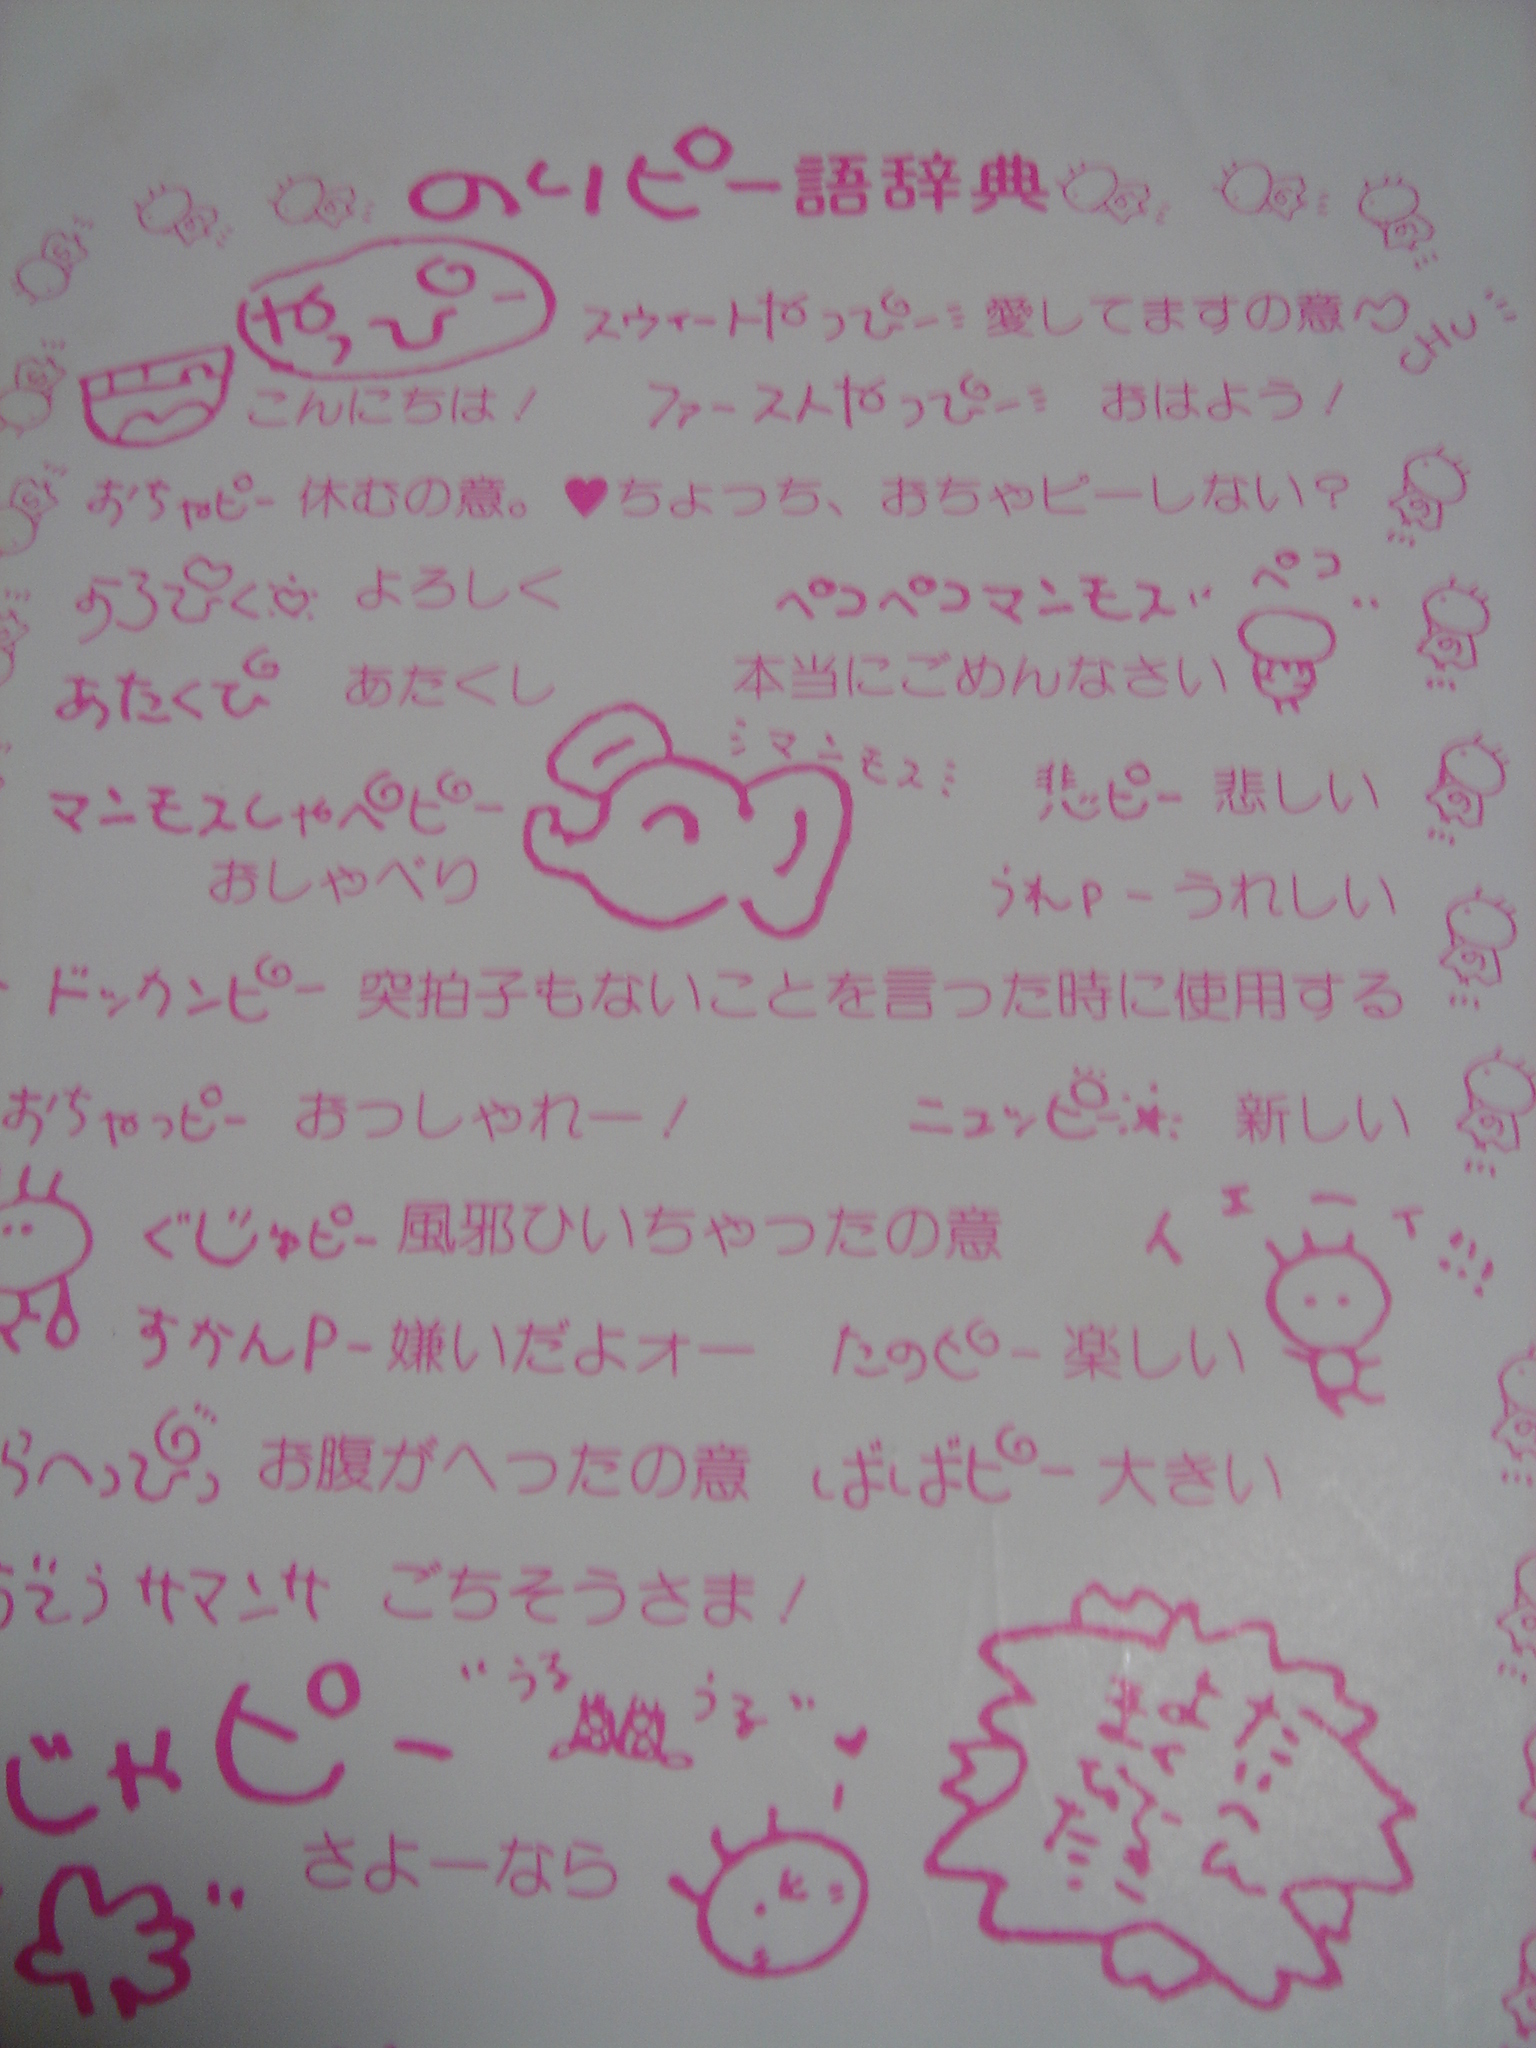 のりピー語辞典
やっぴー
スウィートやっぴー 愛してますの意 CHU
こんにちは! ファーストやっぴー おはよう!
おちゃピー 休むの意。♥ちょっち、おちゃピーしない?
よろぴく よろしく
ペコペコマンモス ペコ
あたくぴ あたくし
本当にごめんなさい
マンモス
マンモスしゃべピー
悲ピー 悲しい
おしゃべり
うれPー うれしい
ドッカンピー 突拍子もないことを言った時に使用する
おちゃっピー おっしゃれー!
ニュッピー 新しい
イエーイ!!!
ぐじゅピー 風邪ひいちゃったの意
すかんPー 嫌いだよオー
たのピー 楽しい
らへっぴっ お腹がへったの意
ばばピー 大きい
ぞうサマンサ ごちそうさま!
じゃピー
うる うる
さよーなら